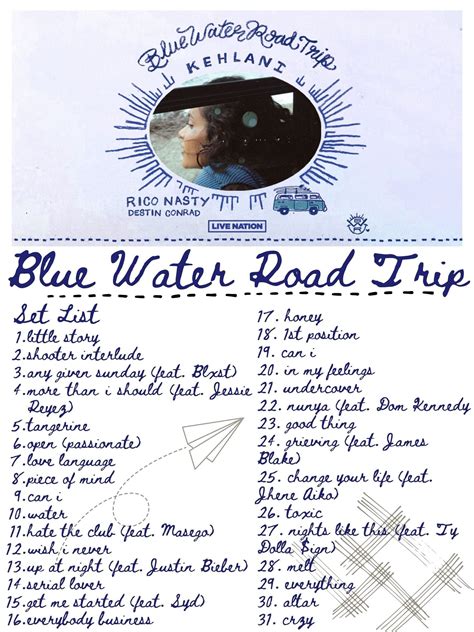 Blue Water Road Trip
KEHLANI
RICO NASTY
DESTIN CONRAD
LIVE NATION
Blue Water Road Trip
Set List
1.little story
2.shooter interlude
3.any given sunday (feat. Blxst)
4.more than i should (feat. Jessie
Reyez)
5.tangerine
6.open (passionate)
7.love language
8.piece of mind
9.can i
10.water
11.hate the club (feat. Masego)
12.wish i never
13.up at night (feat. Justin Bieber)
14.serial lover
15.get me started (feat. Syd)
16.everybody business
17. honey
18. 1st position
19. can i
20. in my feelings
21. undercover
22. nunya (feat. Dom Kennedy
23. good thing
24. grieving (feat. James
Blake)
25. change your life (feat.
Jhene Aiko)
26. toxic
27. nights like this (feat. Ty
Dolla $ign)
28. melt
29. everything
30. altar
31. crzy